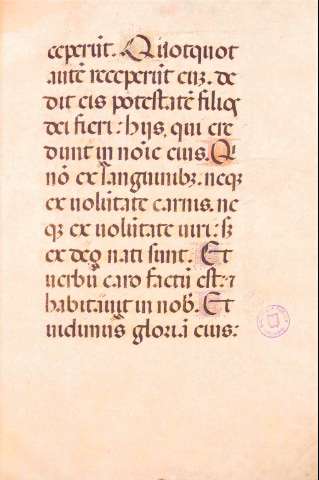 ceperūt. Quotquot
autē receperūt eū; de
dit eis potestatē filios
dei fieri: hijs, qui cre
dunt in nōie eius. Qi
nō ex sanguinibꝫ. neqꝫ
ex volūtate carnis. ne
qꝫ ex volūtate viri: sꝫ
ex deo nati sunt. Et
verbū caro factū est. ⁊
habitauit in nob̄. Et
vidimus gloriā eius: